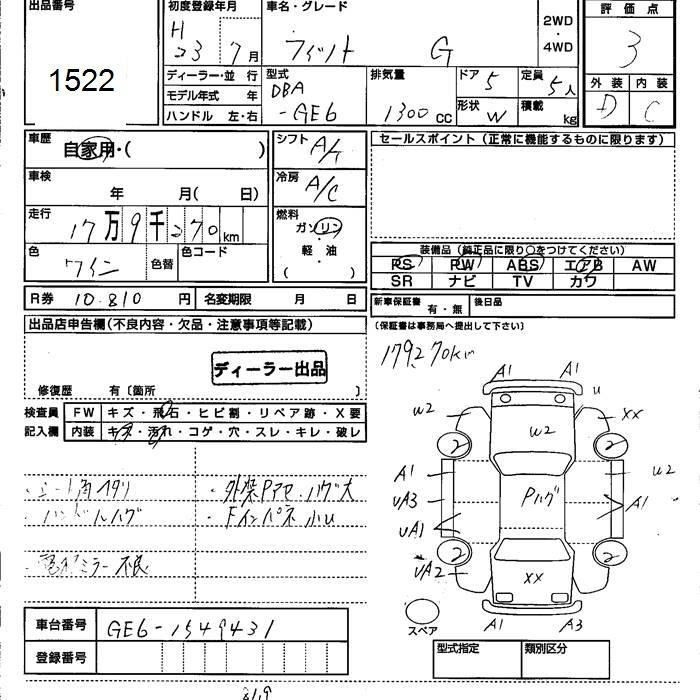 出品番号 初度登録年月 車名・グレード 2WD・4WD 評価点
1522
H 23 7月 フィット G 3
ディーラー・並 行 型式 排気量 ドア 5 定員 5人 外装 内装
モデル年式 年 DBA
ハンドル 左・右 -GE6 1300cc 形状 W 積載 kg D C
車歴 自家用・( ) シフト A/T セールスポイント(正常に機能するものに限ります)
車検 年 月( 日) 冷房 A/C
走行 17万9千270km 燃料 ガソリン
軽・油
( )
色 ワイン 色替 色コード
装備品(純正品に限り○をつけてください)
PS PW ABS エアB AW
SR ナビ TV カワ
R券 10.810円 名変期限 月 日 新車保証書 有・無 後日品
出品店申告欄(不良内容・欠品・注意事項等記載) (保証書は事務局へ提出して下さい)
179270km
ディーラー出品
修復歴 有〔箇所 〕
検査員 FW キズ・飛石・ヒビ割・リペア跡・X要
記入欄 内装 キズ・汚れ・コゲ・穴・スレ・キレ・破レ
・シート角ヘタリ
・ハンドルハゲ
・電格ミラー不良
・外装Pアセ、ハゲ大
・Fインパネ小U
A1 A1
U
W2 W2 XX
2 2
A1 W2
UA3 Pハゲ A1
UA1
2 2
UA2 XX
スペア A1 A3
車台番号 GE6-1549431
登録番号
型式指定 類別区分